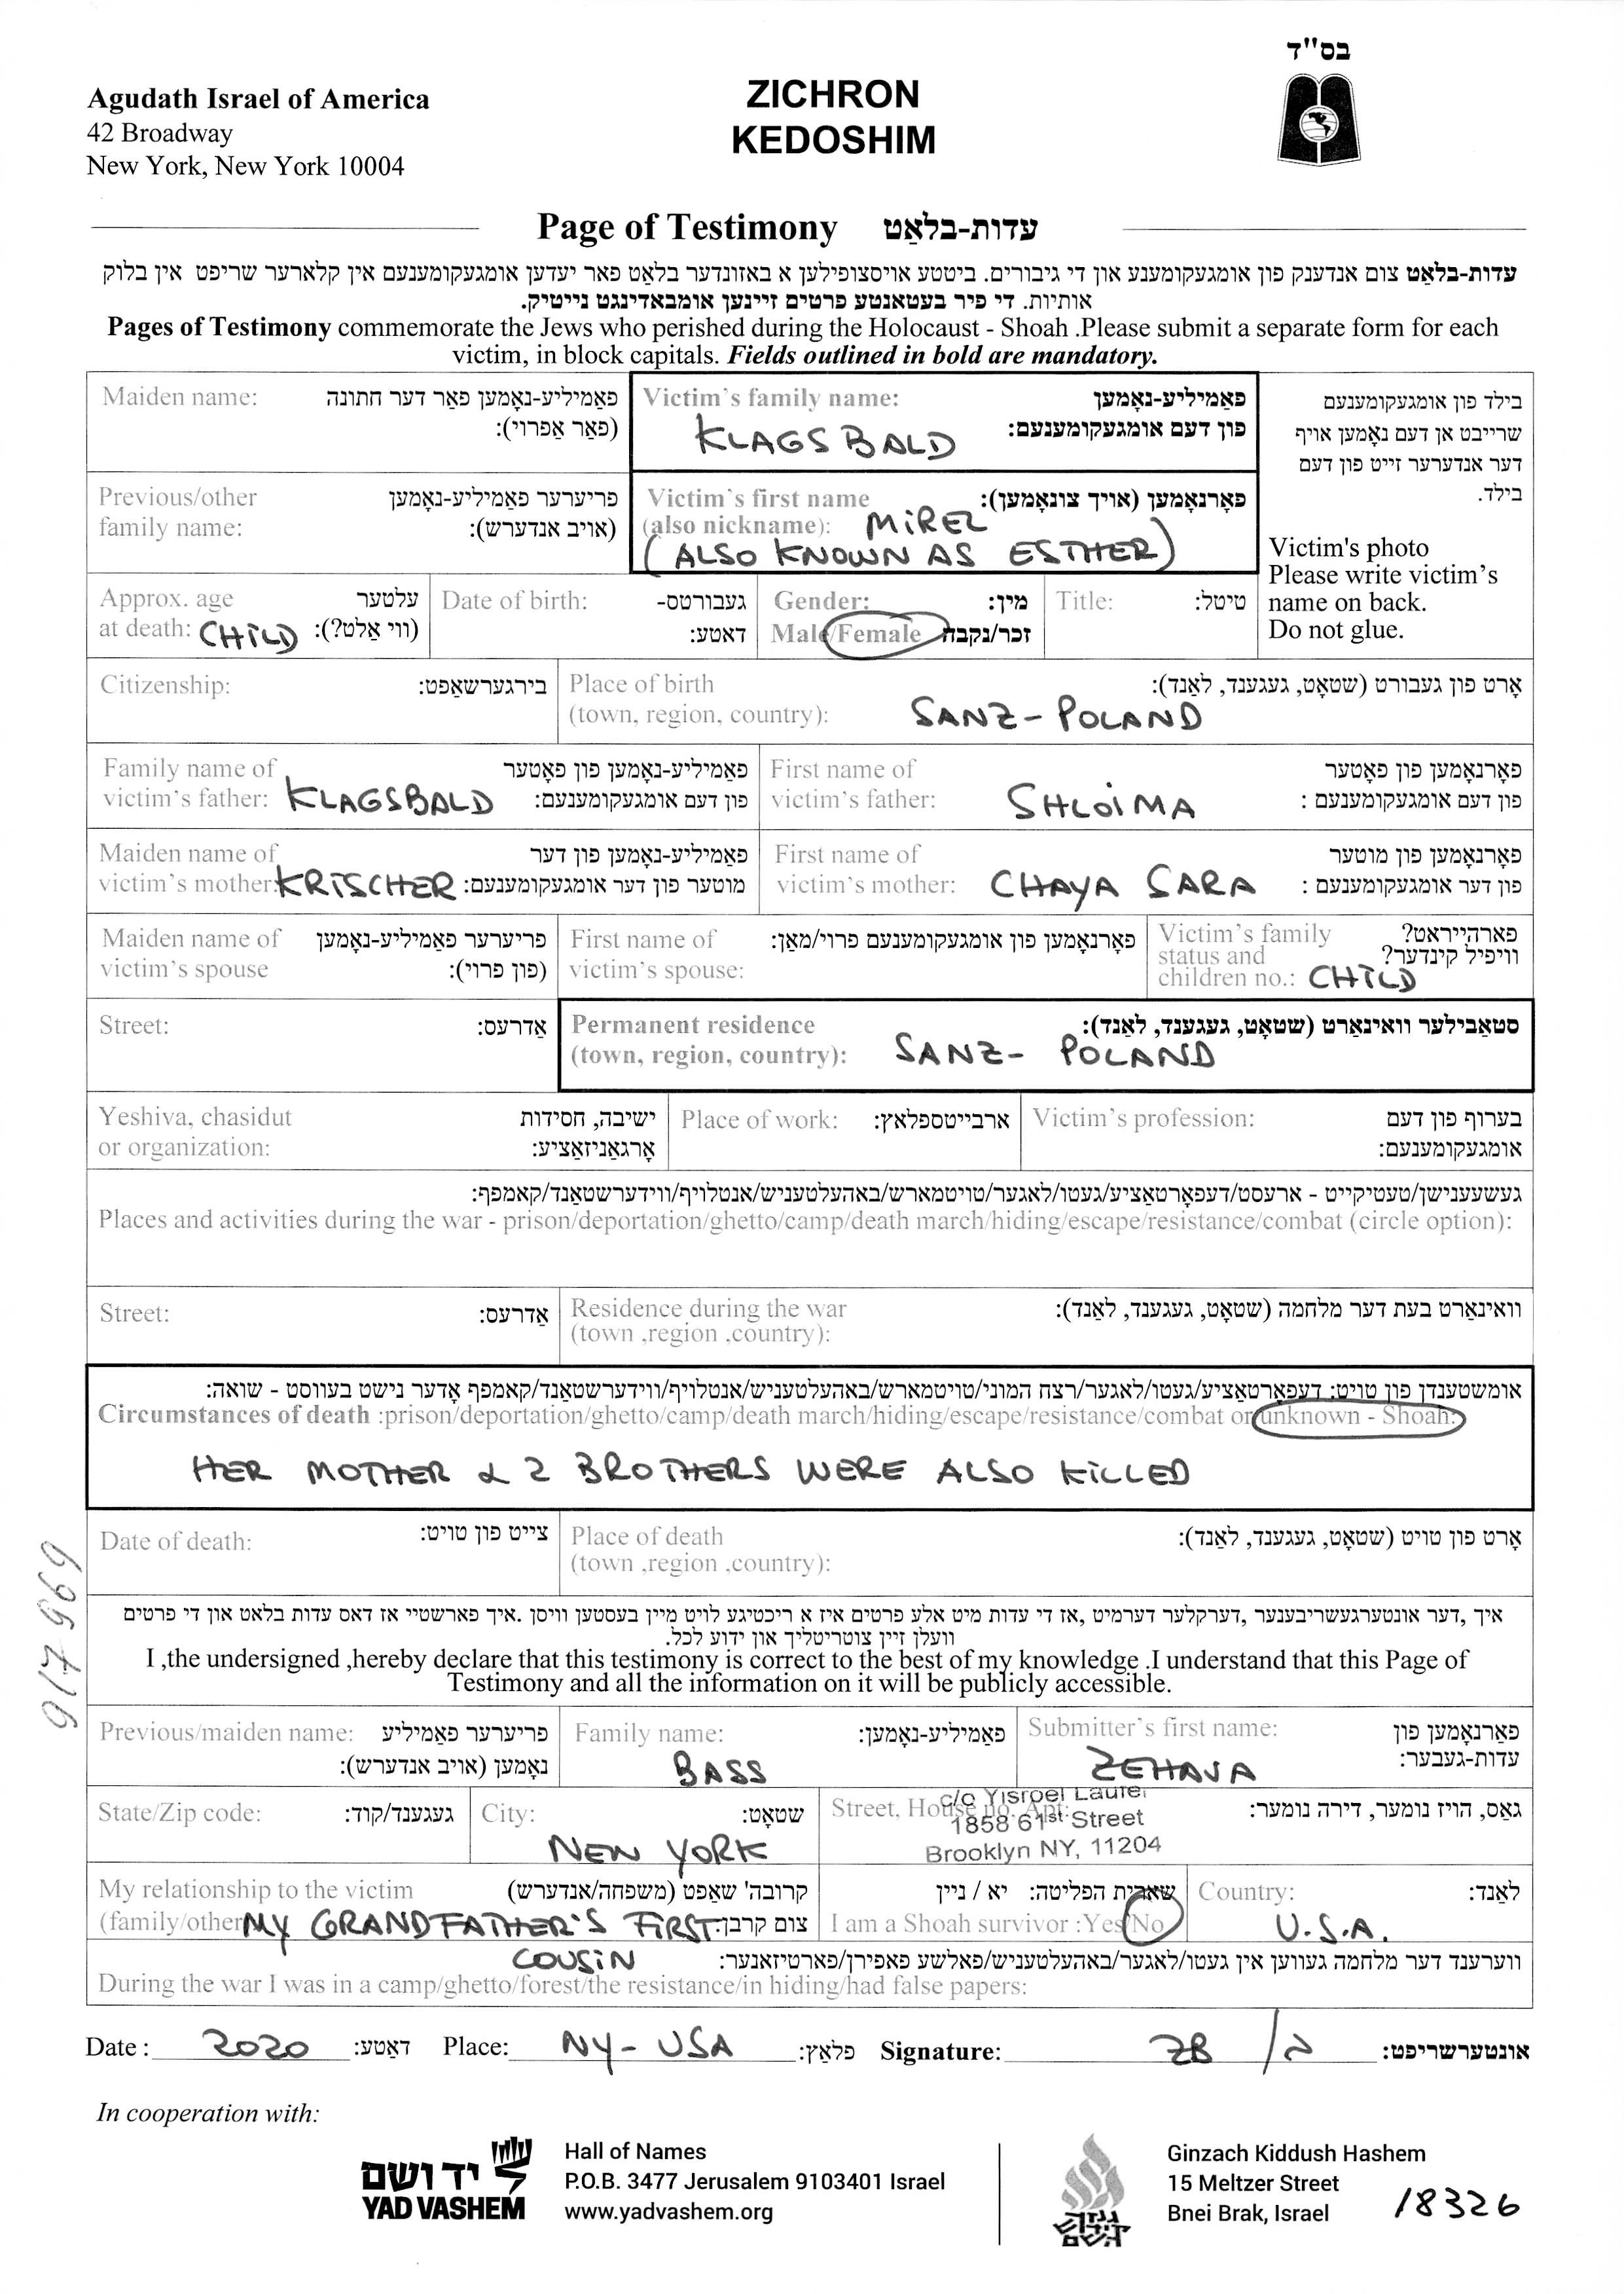 בס"ד
Agudath Israel of America
42 Broadway
New York, New York 10004
ZICHRON
KEDOSHIM
Page of Testimony עדות-בלאַט
עדות-בלאַט צום אנדענק פון אומגעקומענע און די גיבורים. ביטטע אויסצופילען א באזונדער בלאַט פאר יעדען אומגעקומענעם אין קלארער שריפט אין בלוק
אותיות. די פיר בעטאנטע פרטים זיינען אומבאדינגט נייטיק.
Pages of Testimony commemorate the Jews who perished during the Holocaust - Shoah .Please submit a separate form for each
victim, in block capitals. Fields outlined in bold are mandatory.
Maiden name: פאַמיליע-נאָמען פאַר דער חתונה
(פאַר אַפרוי):
Victim's family name: פאַמיליע-נאָמען
פון דעם אומגעקומענעם:
KLAGSBALD
בילד פון אומגעקומענעם
שרייבט אן דעם נאָמען אויף
דער אנדערער זייט פון דעם
בילד.
Victim's photo
Please write victim's
name on back.
Do not glue.
Previous/other פריערער פאַמיליע-נאָמען
family name: (אויב אנדערש):
Victim's first name פאָרנאָמען (אויך צונאָמען):
(also nickname): MIREL
(ALSO KNOWN AS ESTHER)
Approx. age עלטער
at death: CHILD (ווי אַלט?):
Date of birth: געבורטס-
דאַטע:
Gender: מין:
Male/Female זכר/נקבה
Title: טיטל:
Citizenship: בירגערשאַפט:
Place of birth אָרט פון געבורט (שטאָט, געגענד, לאַנד):
(town, region, country): SANZ - POLAND
Family name of פאַמיליע-נאָמען פון פאָטער
victim's father: KLAGSBALD פון דעם אומגעקומענעם:
First name of פאָרנאָמען פון פאָטער
victim's father: SHLOIMA פון דעם אומגעקומענעם :
Maiden name of פאַמיליע-נאָמען פון דער
victim's mother: KRISCHER מוטער פון דער אומגעקומענעם:
First name of פאָרנאָמען פון מוטער
victim's mother: CHAYA SARA פון דער אומגעקומענעם :
Maiden name of פריערער פאַמיליע-נאָמען
victim's spouse (פון פרוי):
First name of פאָרנאָמען פון אומגעקומענעם פרוי/מאַן:
victim's spouse:
Victim's family פארהייראט?
status and וויפיל קינדער?
children no.: CHILD
Street: אַדרעס:
Permanent residence סטאַבילער וואוינאָרט (שטאָט, געגענד, לאַנד):
(town, region, country): SANZ - POLAND
Yeshiva, chasidut ישיבה, חסידות
or organization: אָרגאַניזאַציע:
Place of work: ארבייטספלאץ:
Victim's profession: בערוף פון דעם
אומגעקומענעם:
געשעענישן/טעטיקייט - ארעסט/דעפאָרטאַציע/געטו/לאַגער/טויטמארש/באהעלטעניש/אנטלויף/ווידערשטאַנד/קאַמפף:
Places and activities during the war - prison/deportation/ghetto/camp/death march/hiding/escape/resistance/combat (circle option):
Street: אַדרעס:
Residence during the war וואוינאָרט בעת דער מלחמה (שטאָט, געגענד, לאַנד):
(town ,region ,country):
אומשטענדן פון טויט: דעפאָרטאַציע/געטו/לאגער/רצח המוני/טויטמארש/באהעלטעניש/אנטלויף/ווידערשטאַנד/קאמפף אָדער נישט בעווסט - שואה:
Circumstances of death :prison/deportation/ghetto/camp/death march/hiding/escape/resistance/combat or unknown - Shoah:
HER MOTHER & 2 BROTHERS WERE ALSO KILLED
Date of death: צייט פון טויט:
Place of death אָרט פון טויט (שטאָט, געגענד, לאַנד):
(town ,region ,country):
איך ,דער אונטערגעשריבענער ,דערקלער דערמיט ,אז די עדות מיט אלע פרטים איז א ריכטיגע לויט מיין בעסטען וויסן .איך פארשטיי אז דאס עדות בלאט און די פרטים
וועלן זיין צוטריטליך און ידוע לכל.
I ,the undersigned ,hereby declare that this testimony is correct to the best of my knowledge .I understand that this Page of
Testimony and all the information on it will be publicly accessible.
Previous/maiden name: פריערער פאַמיליע
נאָמען (אויב אנדערש):
Family name: פאַמיליע-נאָמען:
BASS
Submitter's first name: פאָרנאָמען פון
עדות-געבער:
ZEHAVA
State/Zip code: געגענד/קוד:
City: שטאָט:
NEW YORK
Street, House no. Apt: גאַס, הויז נומער, דירה נומער:
c/o Yisroel Laufer
1858 61st Street
Brooklyn NY, 11204
My relationship to the victim קרובה' שאַפט (משפחה/אנדערש)
(family/other MY GRANDFATHER'S FIRST צום קרבן:
COUSIN
שארית הפליטה: יא / ניין
I am a Shoah survivor :Yes/No
Country: לאַנד:
U.S.A.
ווערענד דער מלחמה געווען אין געטו/לאגער/באהעלטעניש/פאלשע פאפירן/פארטיזאנער:
During the war I was in a camp/ghetto/forest/the resistance/in hiding/had false papers:
Date : 2020 דאַטע: Place: NY - USA פלאַץ: Signature: ZB אונטערשריפט:
In cooperation with:
יד ושם
YAD VASHEM
Hall of Names
P.O.B. 3477 Jerusalem 9103401 Israel
www.yadvashem.org
Ginzach Kiddush Hashem
15 Meltzer Street
Bnei Brak, Israel
18326